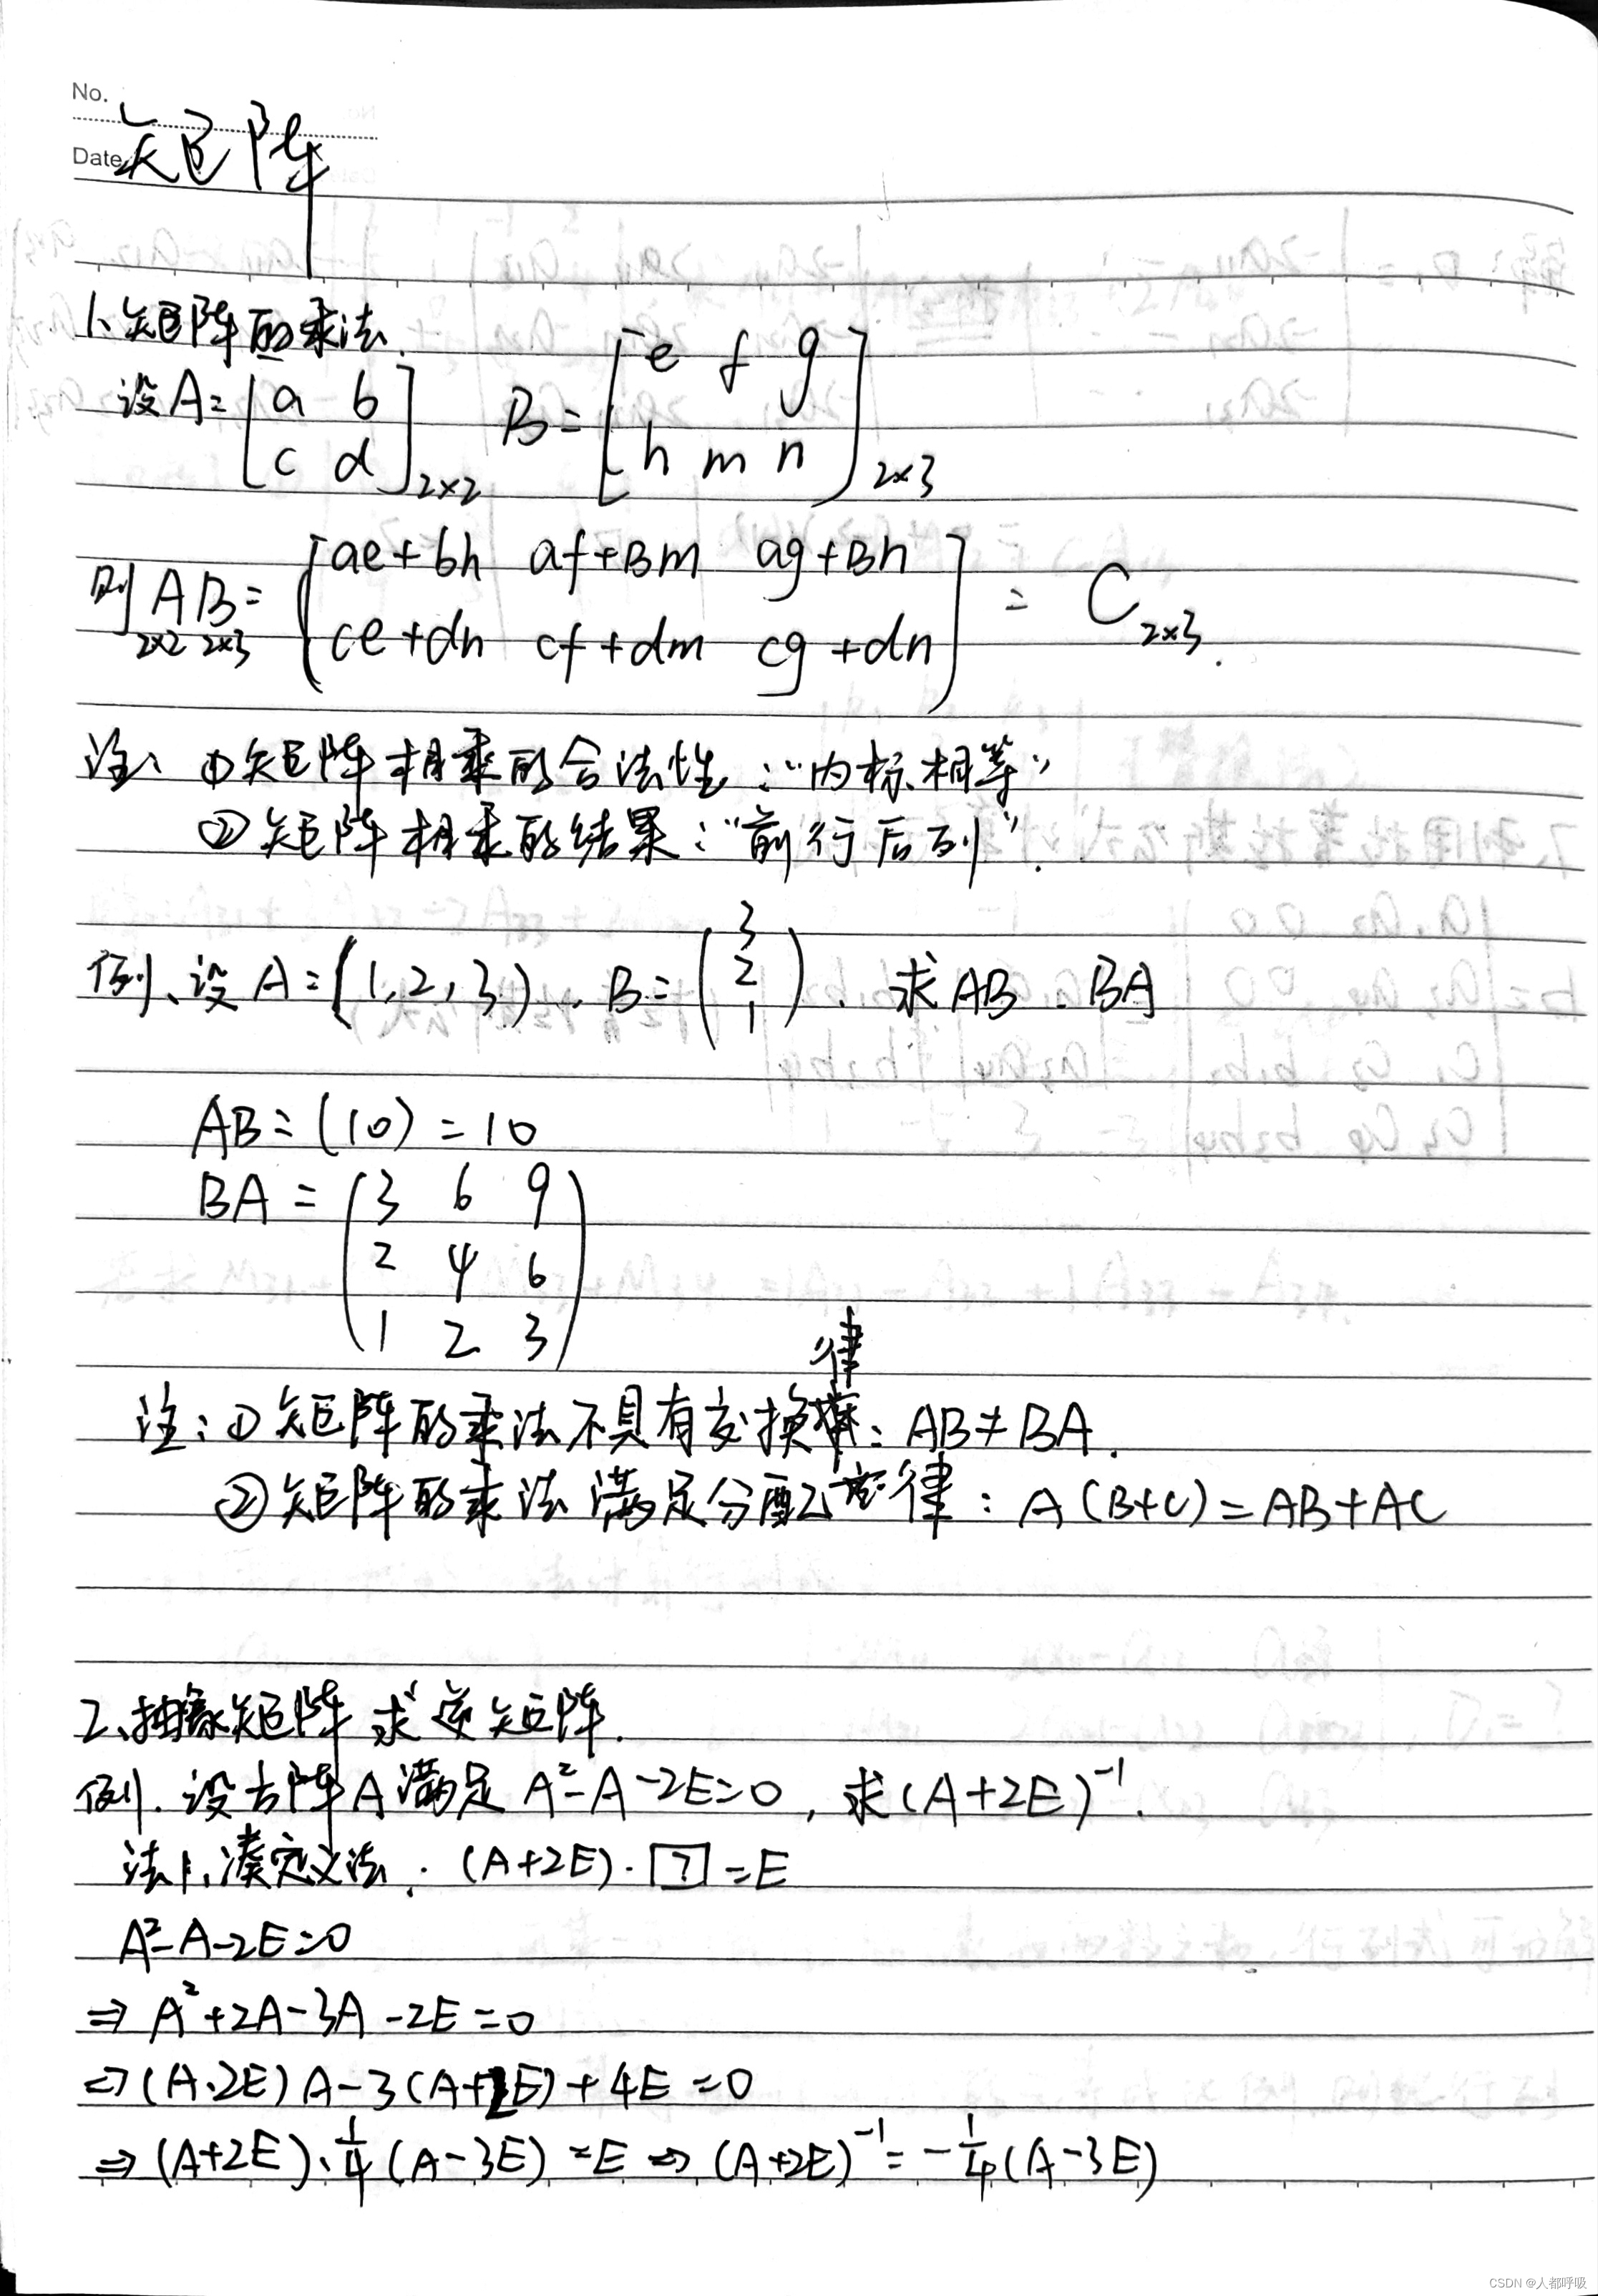 No.
Date
矩阵
1、矩阵的乘法.
设A=[a b
c d]2×2 B=[e f g
h m n]2×3
则 A2×2 B2×3 = [ae+bh af+Bm ag+Bn
ce+dh cf+dm cg+dn] = C2×3.
注、①矩阵相乘的合法性:“内标相等”
②矩阵相乘的结果:“前行后列”.
例、设A=(1,2,3). B=(3
2
1). 求AB . BA
AB=(10)=10
BA=(3 6 9
2 4 6
1 2 3)
注:①矩阵的乘法不具有交换律:AB≠BA.
②矩阵的乘法满足分配律:A(B+C)=AB+AC
2、抽象矩阵求逆矩阵.
例.设方阵A满足A²-A-2E=0,求(A+2E)⁻¹.
法1、凑定义法.(A+2E)·[?]=E
A²-A-2E=0
⇒A²+2A-3A-2E=0
⇒(A·2E)A-3(A+2E)+4E=0
⇒(A+2E)·1/4(A-3E)=E⇒(A+2E)⁻¹=-1/4(A-3E)
CSDN @人都呼吸